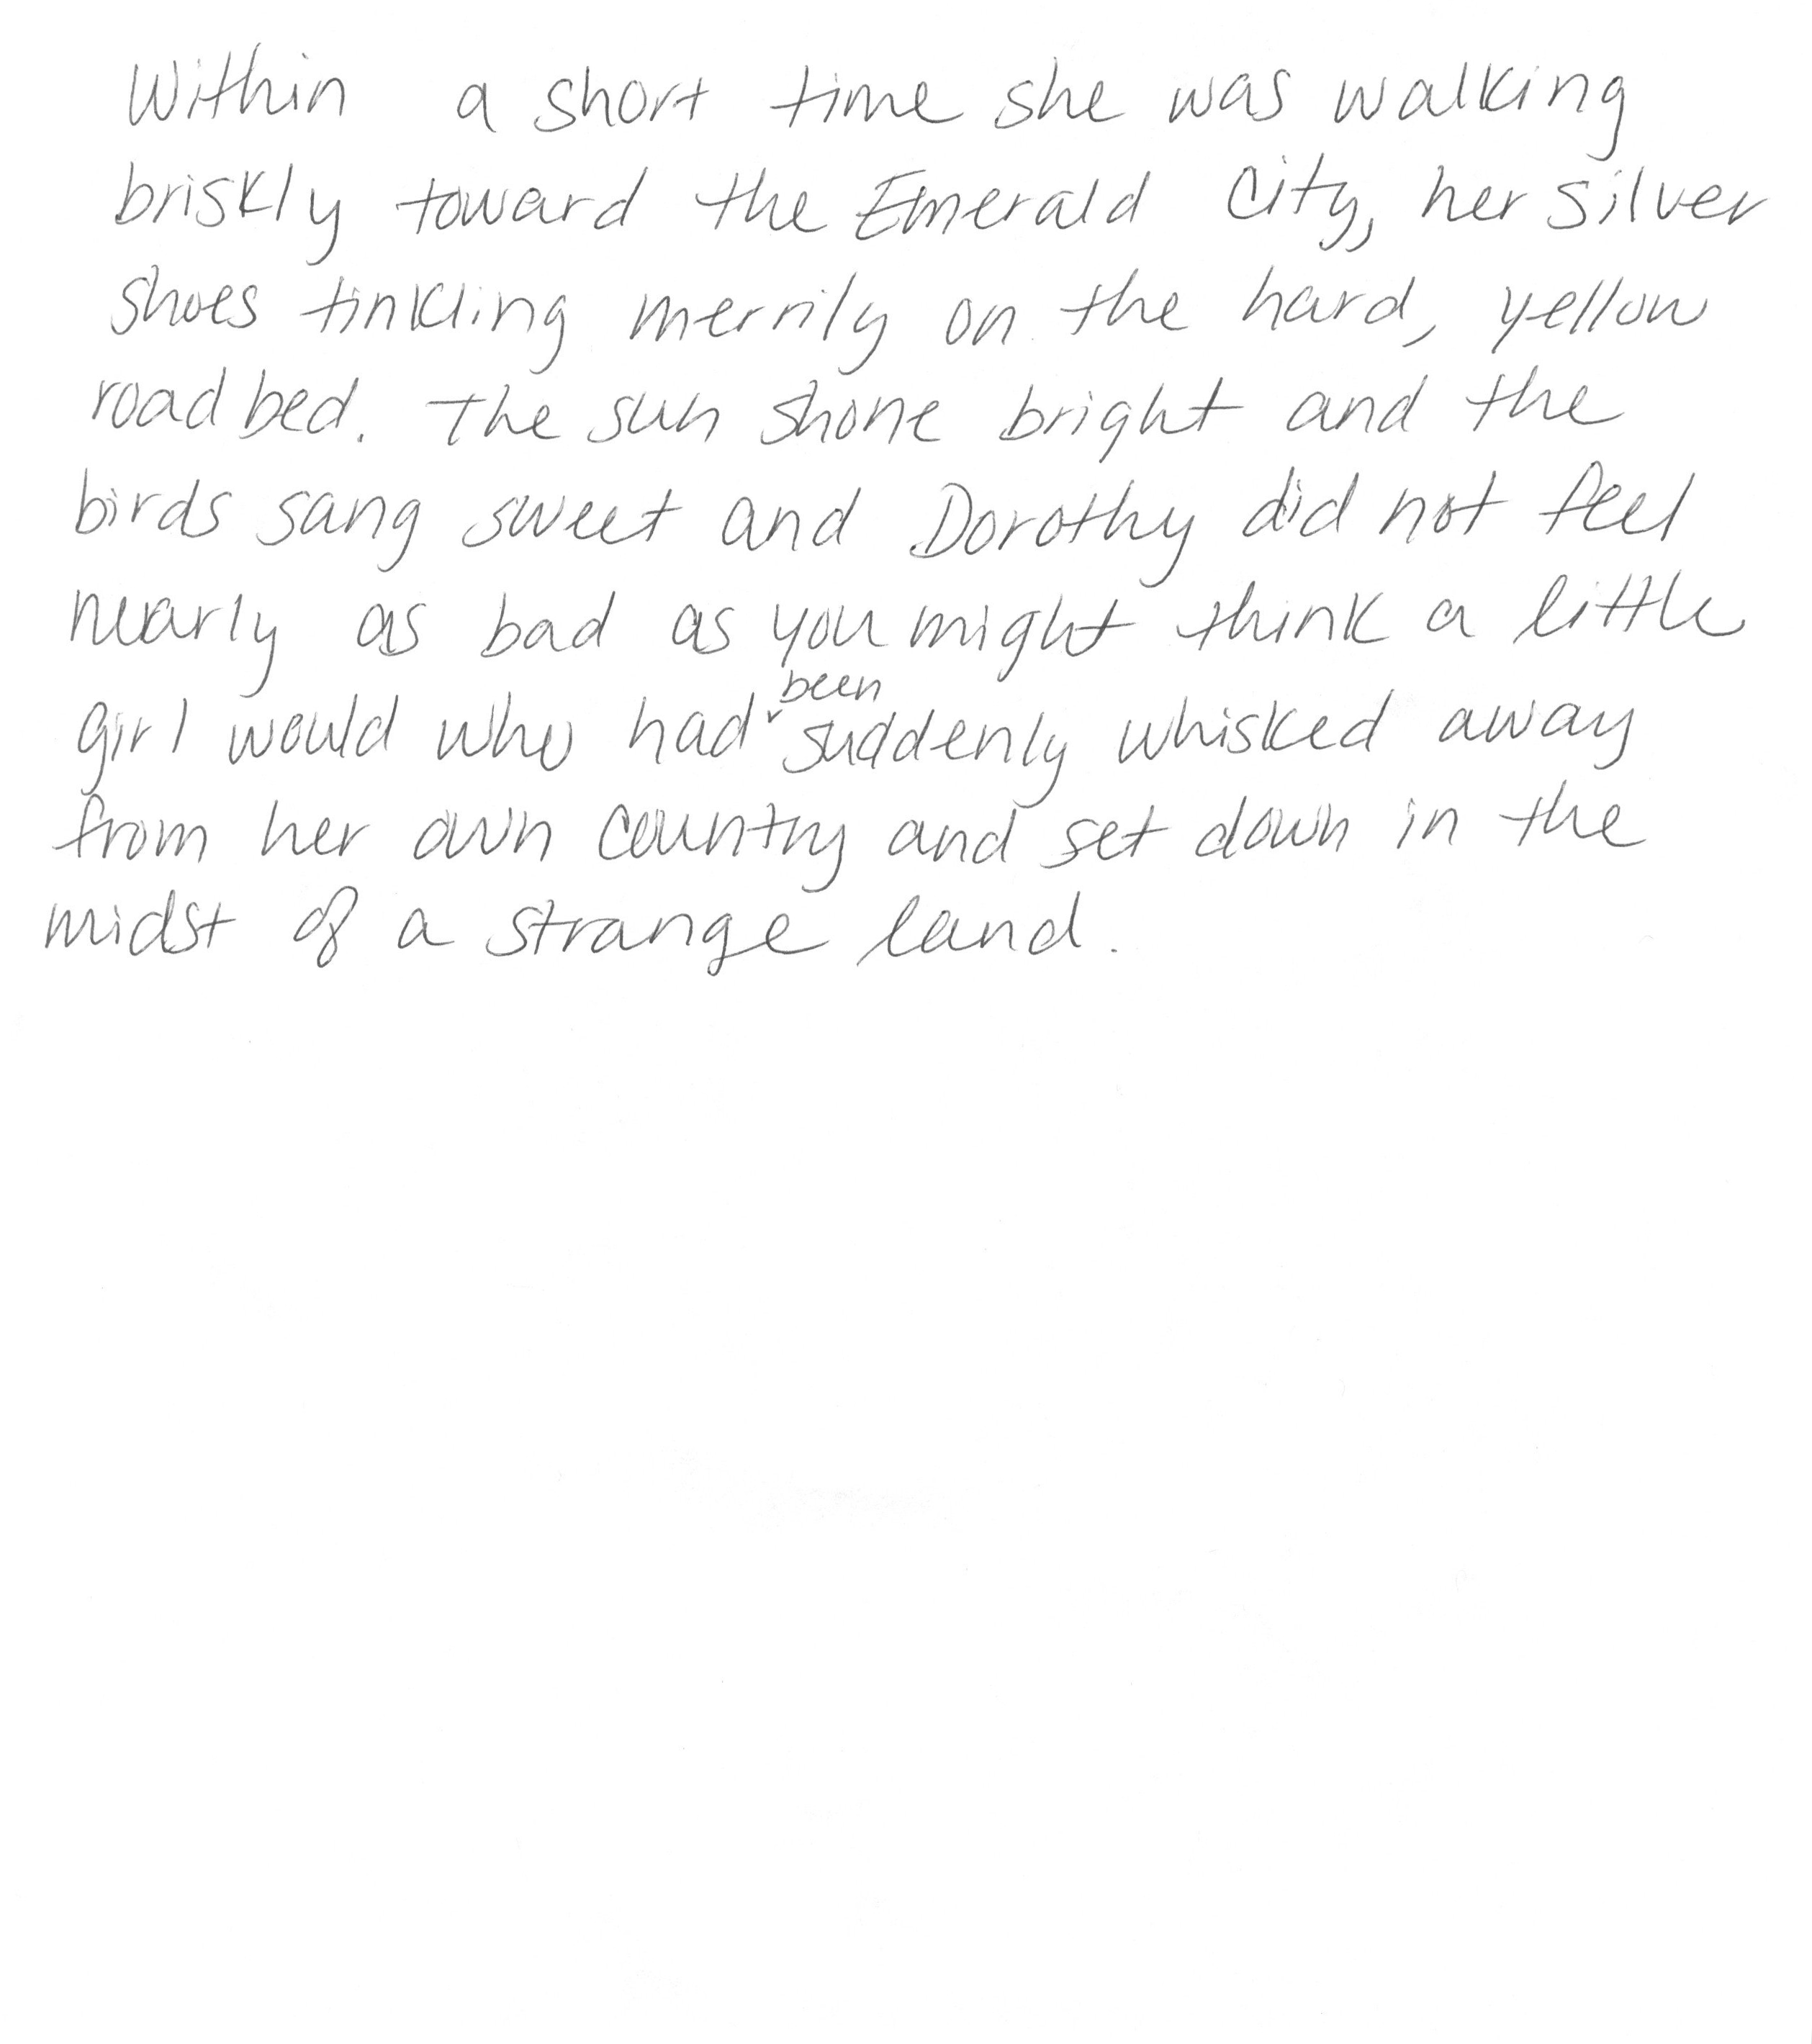 Within a short time she was walking
briskly toward the Emerald City, her silver
shoes tinkling merrily on the hard, yellow
road bed. The sun shone bright and the
birds sang sweet and Dorothy did not feel
nearly as bad as you might think a little
girl would who had been suddenly whisked away
from her own country and set down in the
midst of a strange land.